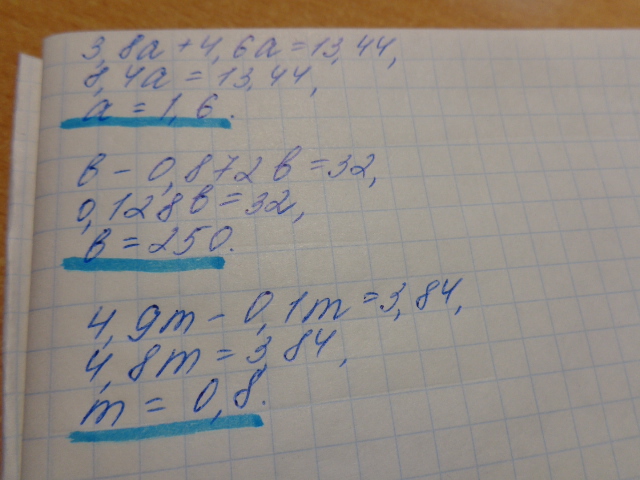 3,8a + 4,6a = 13,44,
8,4a = 13,44,
a = 1,6.
в - 0,872в = 32,
0,128в = 32,
в = 250.
4,9m - 0,1m = 3,84,
4,8m = 3,84,
m = 0,8.